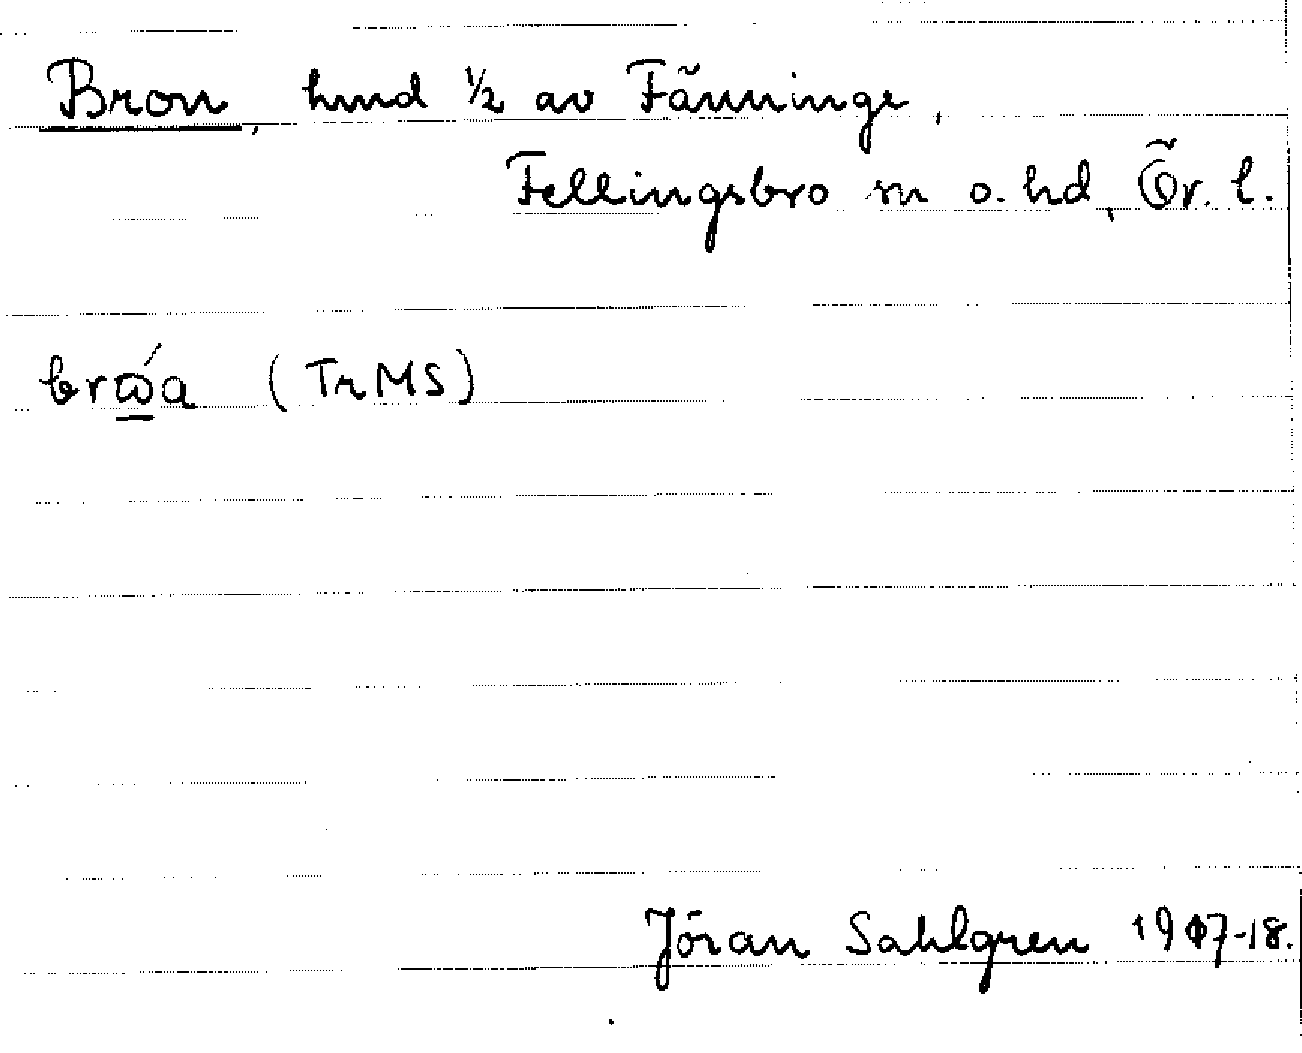 Bron, hmd ½ av Fänninge,
Fellingsbro sn o. hd, Ör. l.
(TrMS)
Jöran Sahlgren 1917-18.